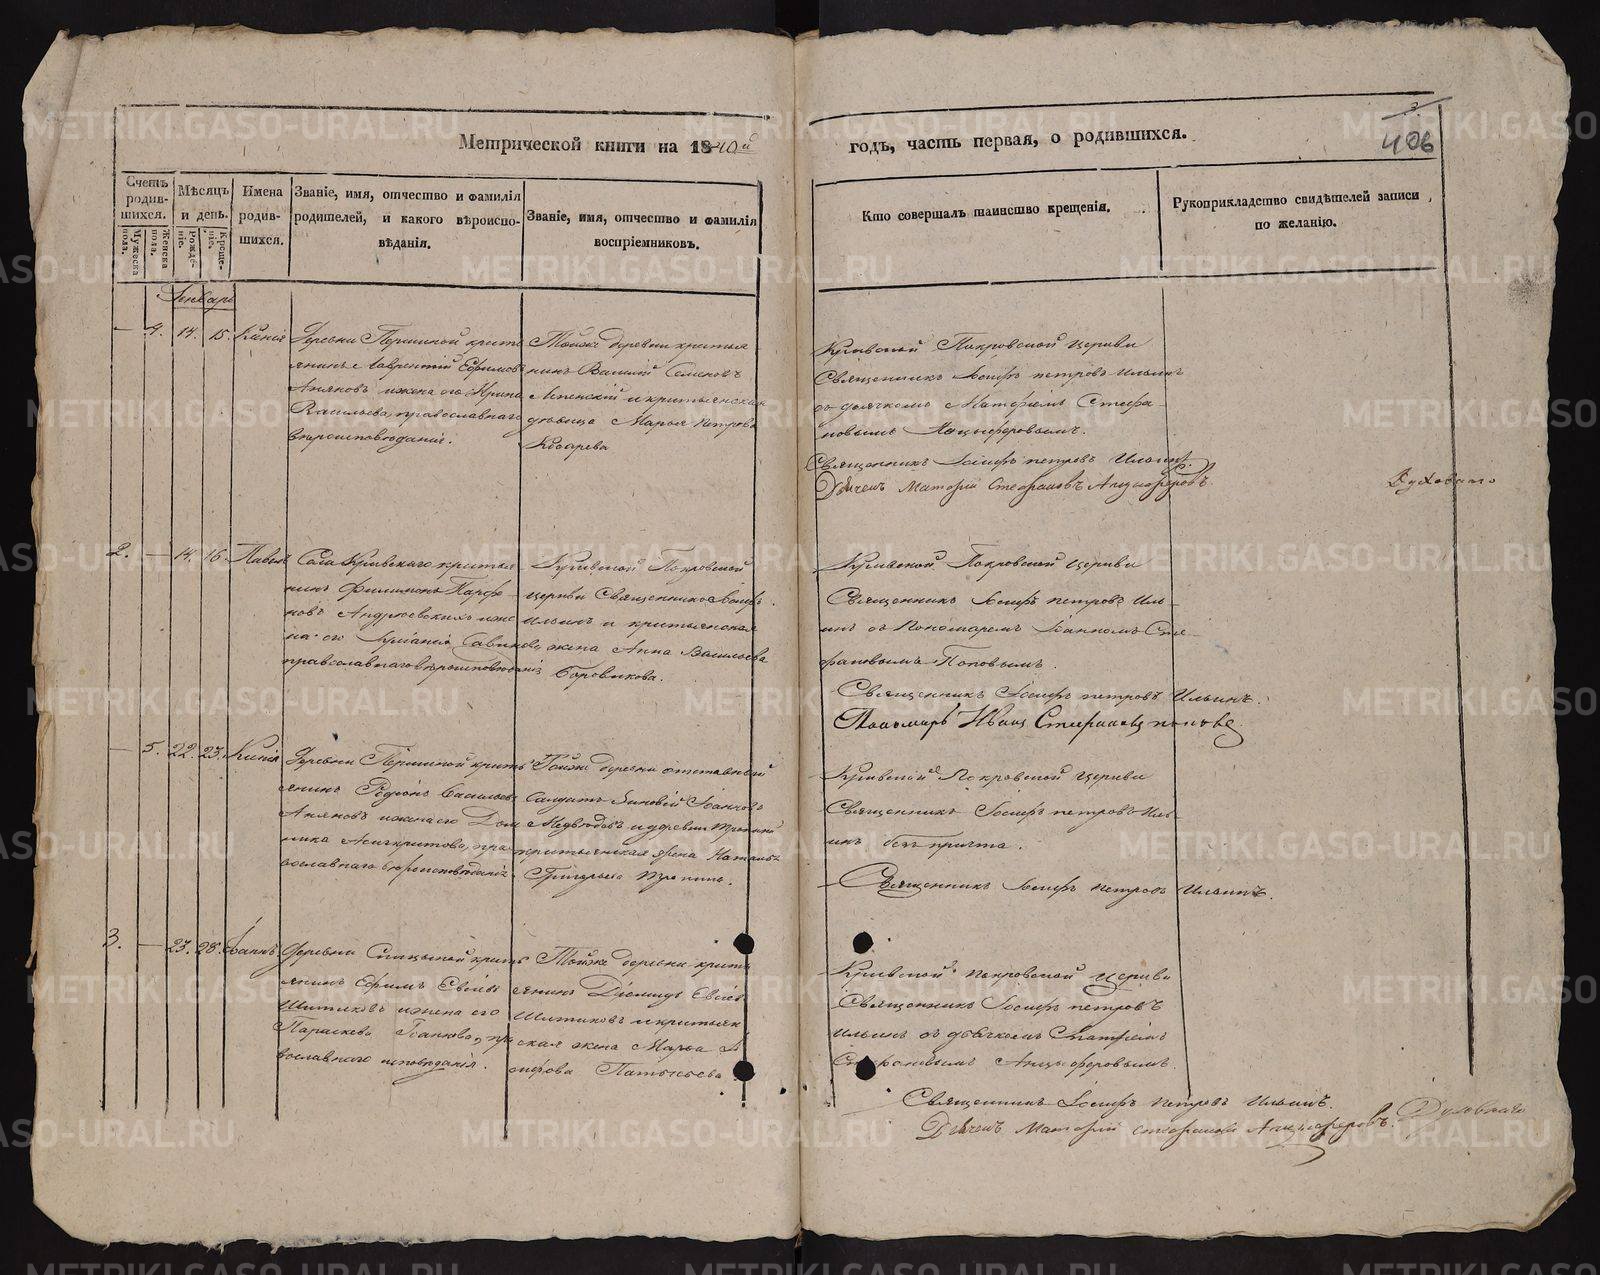 Метрической книги на 1840й
годъ, часть первая, о родившихся.
3
406
Счетъ родившихся.
Мужеска пола.
Женска пола.
Мѣсяцъ и день.
Рожденіе.
Крещеніе.
Имена родившихся.
Званіе, имя, отчество и фамилія родителей, и какого вѣроисповѣданія.
Званіе, имя, отчество и фамилія воспріемниковъ.
Кто совершалъ таинство крещенія.
Рукоприкладство свидѣтелей записи по желанію.
Январь
4. 14. 15.
Деревни Першиной кресть
янинъ Лаврентій Ефимовъ
ижена его Ирина
Васильева, православнаго
вѣроисповѣданія.
Тойже деревни крестья
нинъ Василій Семеновъ
и крестьянская
дѣвица Марья Петрова
Косарева
Покровской церкви
Священникъ Іосифъ петровъ Ильинъ
съ дьячкомъ Матфіемъ Стефа-
новымъ Анцыферовымъ.
Священникъ Іосифъ петровъ Ильинъ.
Дьячекъ Матфій Стефановъ Анцыферовъ
2. 14. 16. Павелъ
Села крестья
нинъ Филимонъ Парфе
новъ Андріевскихъ иже
на его Савинова,
православнаго вѣроисповѣданія
Покровской
церкви Священникъ Іосифъ
Ильинъ и крестьянская
жена Анна Васильева
Боровикова.
Покровской церкви
Священникъ Іосифъ петровъ Иль-
инъ съ Пономаремъ Іоанномъ Сте-
фановымъ Поповымъ.
Священникъ Іосифъ петровъ Ильинъ.
Пономарь Иванъ Стефановъ поповъ
5. 22. 23. Ксенія
Деревни Першиной кресть
янинъ Родіонъ Васильевъ
ижена его Дом
ника пра
вославнаго вѣроисповѣданія
Тойже деревни отставный
Солдатъ Зиновій Іоанновъ
Медвѣдевъ и деревни
крестьянская жена Наталья
Григорьева
Покровской церкви
Священникъ Іосифъ петровъ Иль-
инъ безъ причта.
Священникъ Іосифъ петровъ Ильинъ.
3. 23. 28. Іоаннъ
Деревни кресть
янинъ Ефимъ Евсіевъ
Шитиковъ ижена его
Параскева Іоаннова, пра
вославнаго исповѣданія.
Тойже деревни кресть
янинъ Діомидъ Евсіевъ
Шитиковъ и крестьян
ская жена Марья
Покровской церкви
Священникъ Іосифъ петровъ
Ильинъ съ дьячкомъ Матфіемъ
Стефановымъ Анцыферовымъ.
Священникъ Іосифъ петровъ Ильинъ.
Дьячекъ Матфій стефановъ Анцыферовъ.
METRIKI.GASO-URAL.RU